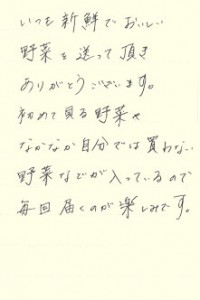 いつも新鮮でおいしい
野菜を送って頂き
ありがとうございます。
初めて見る野菜や
なかなか自分では買わない
野菜などが入っているので
毎回届くのが楽しみです。